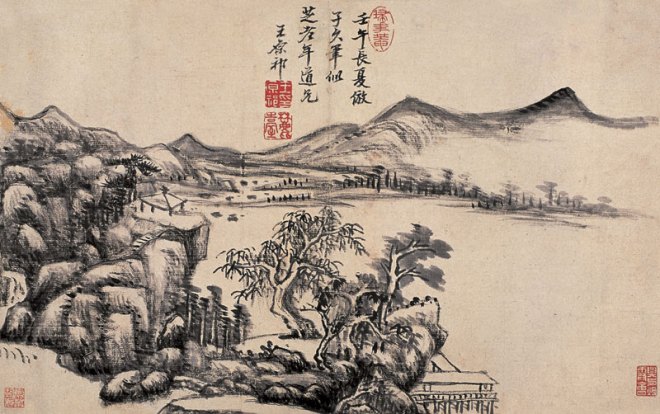 壬午長夏倣
子久筆似
芝老年道兄
王原祁